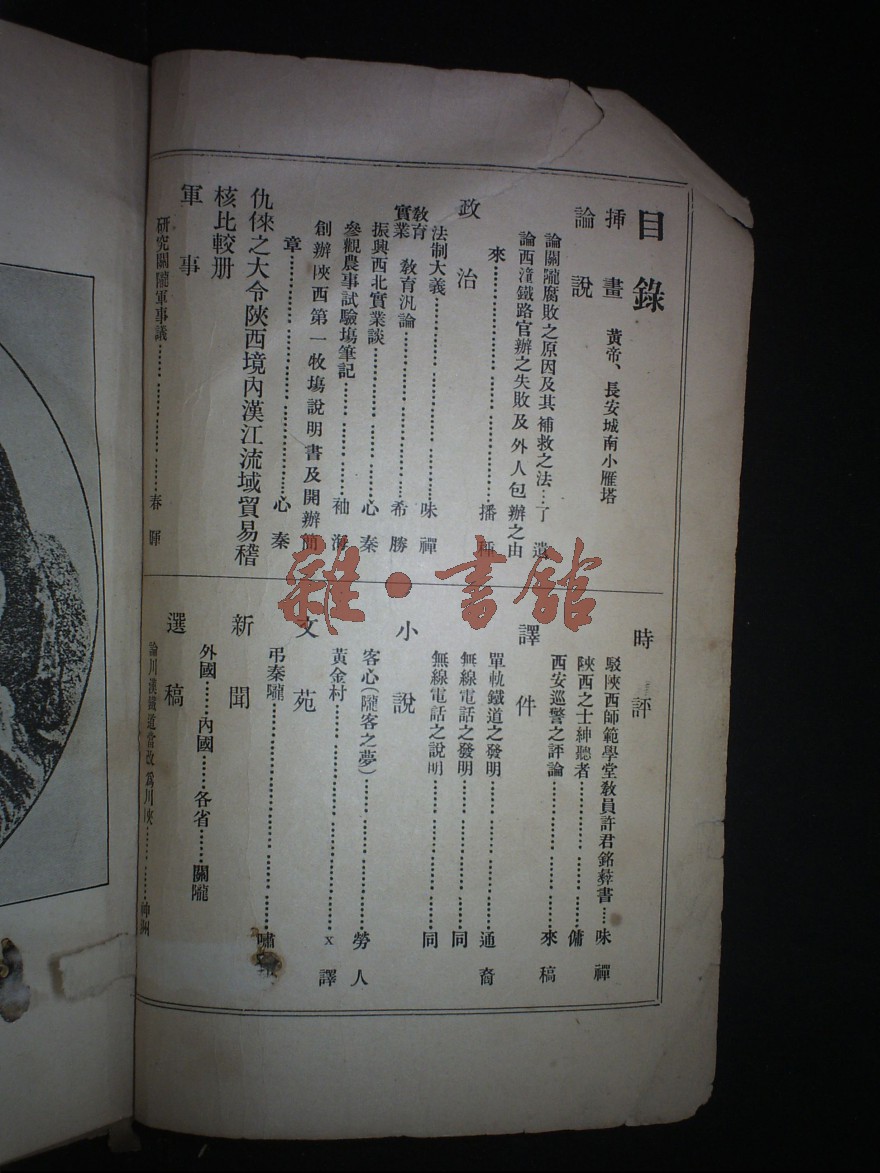 目錄
插畫 黃帝、長安城南小雁塔
論說
論關隴腐敗之原因及其補救之法…了遺
論西潼鐵路官辦之失敗及外人包辦之由
來……播種
政治
法制大義……味禪
教育
實業 教育汎論……希勝
振興西北實業談……心秦
參觀農事試驗場筆記……袖海
創辦陝西第一牧塲說明書及開辦簡
章……心秦
仇倈之大令陝西境內漢江流域貿易稽
核比較册
軍事
研究關隴軍事議……春暉
時評
駁陝西師範學堂教員許君銘彝書…味禪
陝西之士紳聽者……傭
西安巡警之評論……來稿
譯件
單軌鐵道之發明……通裔
無線電話之發明……同
無線電話之說明……同
小說
客心（隴客之夢）……勞人
黃金村……x譯
文苑
弔秦隴……嘯
新聞
外國……內國……各省……關隴
選稿
論川漢鐵道當改爲川陝……神州
雜·書館